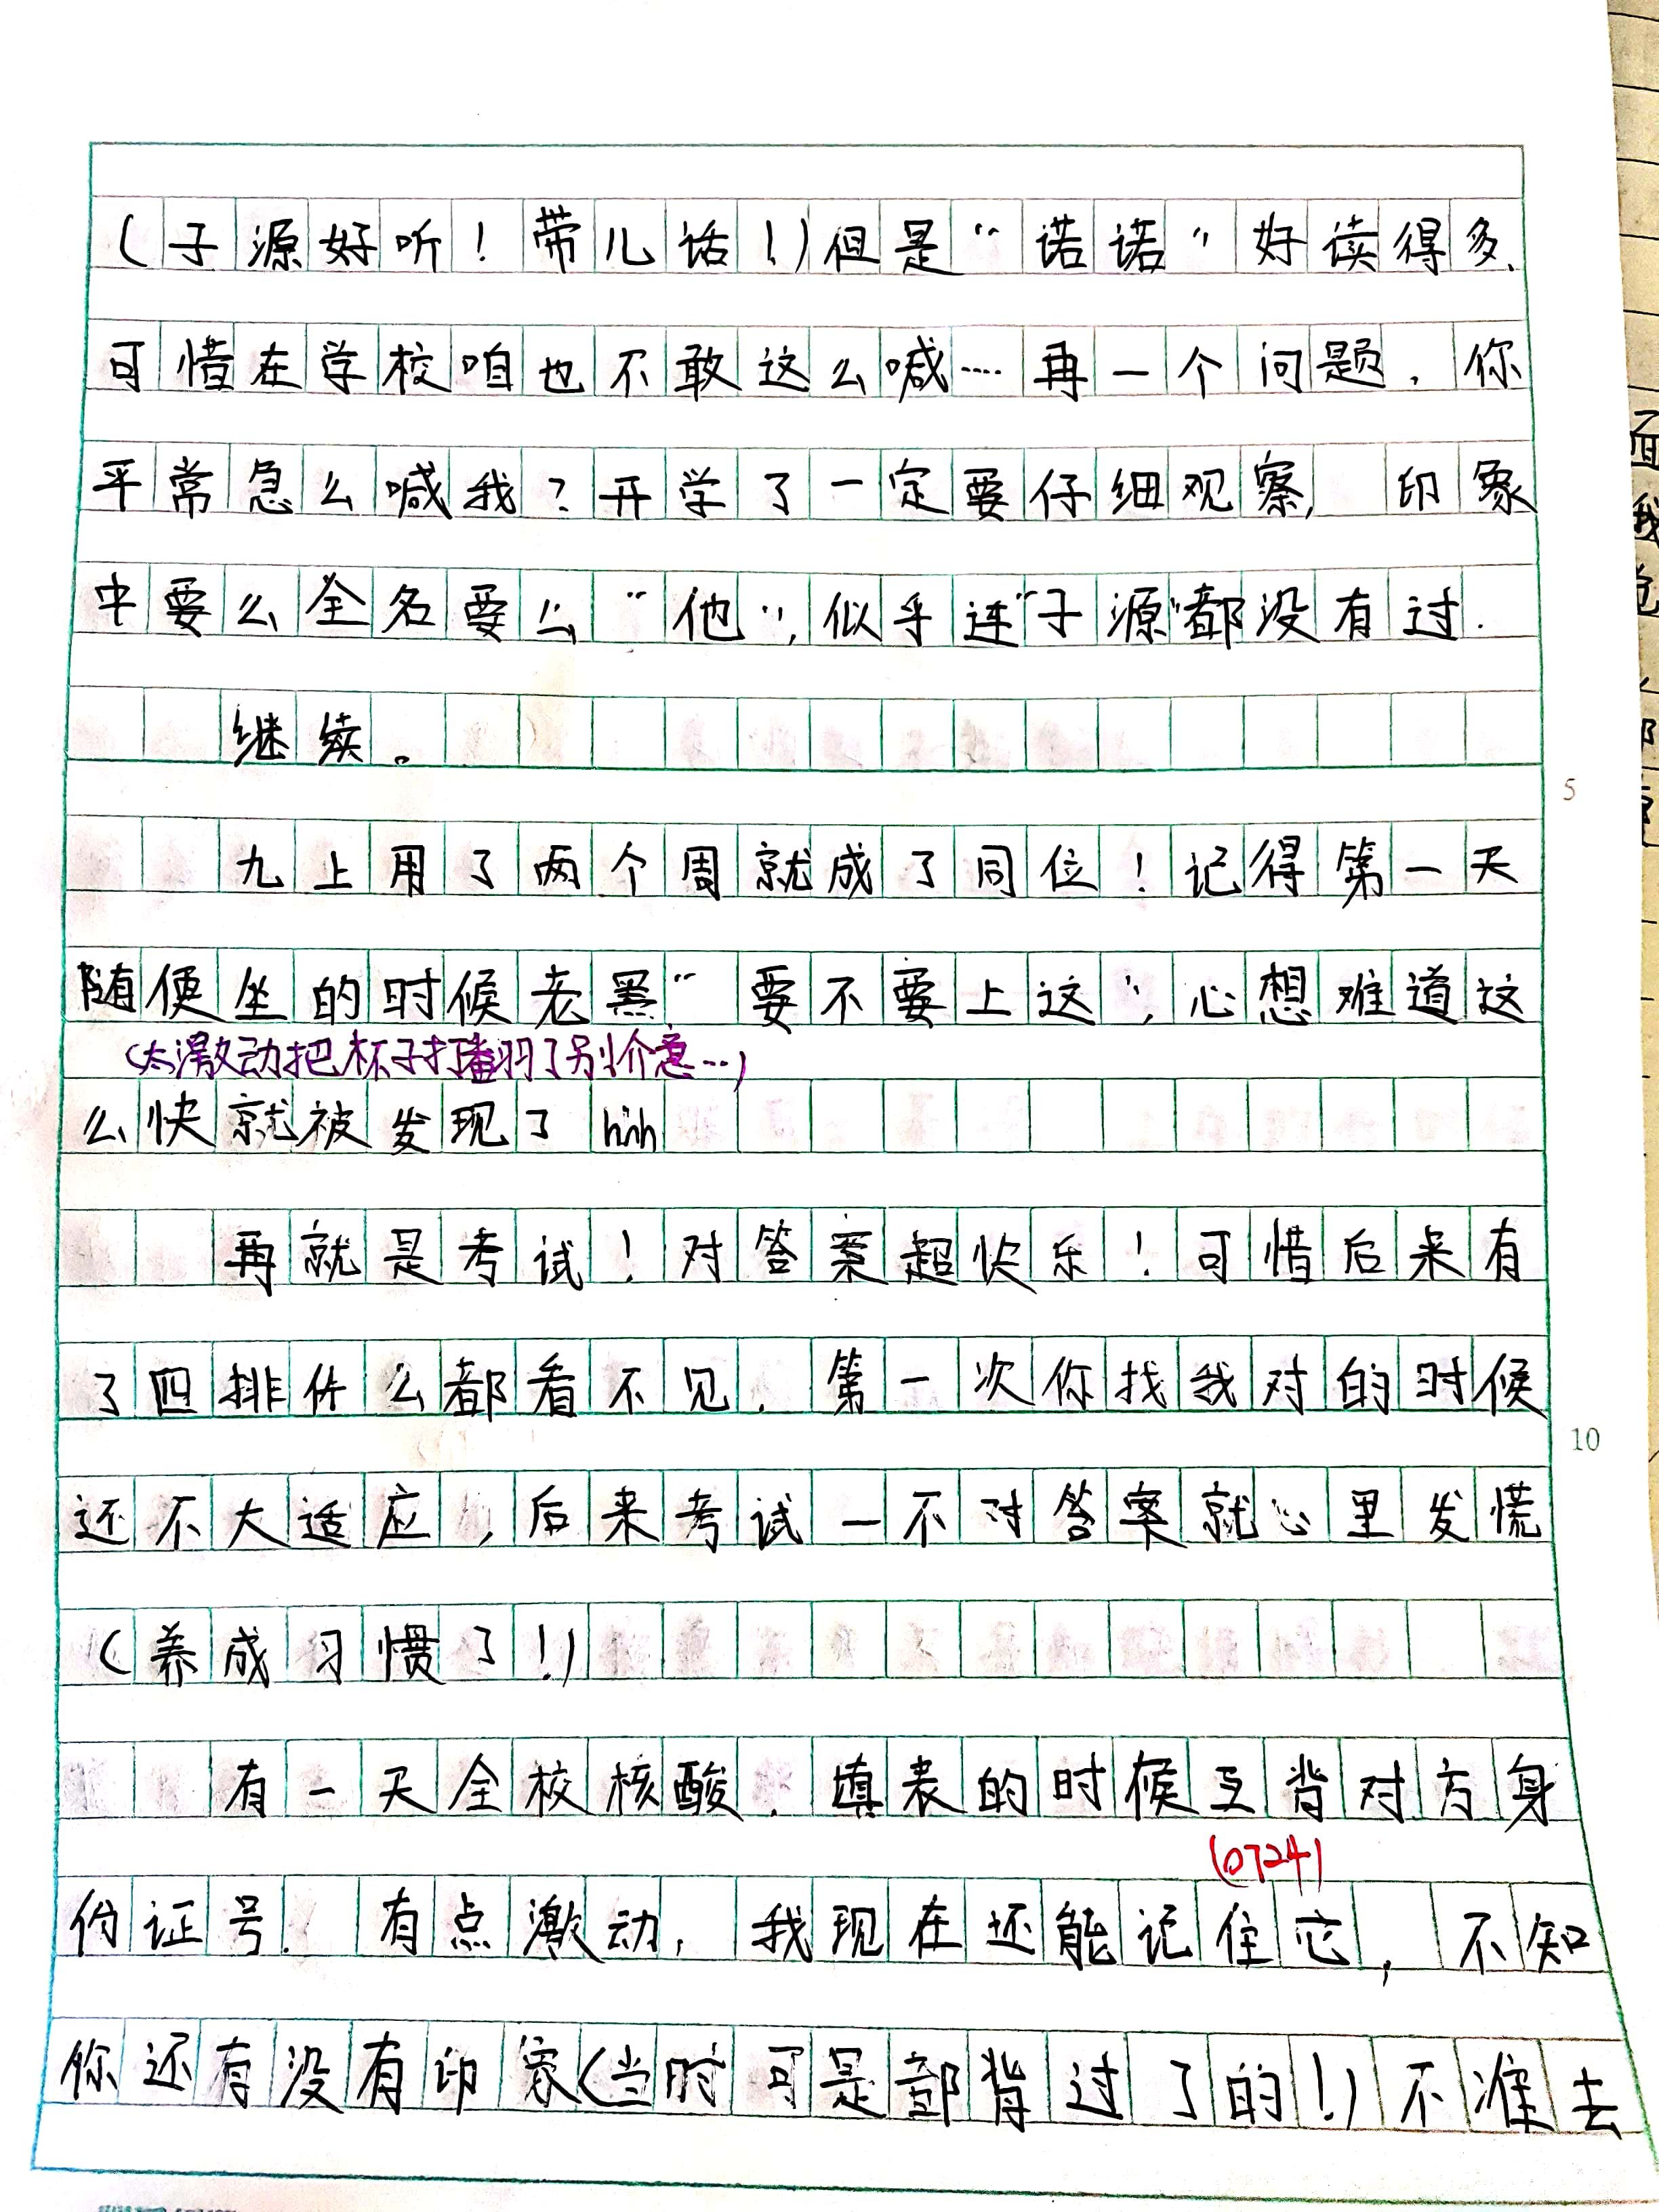 （子源好听！带儿话！）但是“诺诺”好读得多.
可惜在学校咱也不敢这么喊…再一个问题，你
平常怎么喊我？开学了一定要仔细观察，印象
中要么全名要么“他”，似乎连“子源”都没有过.
继续。
5
九上用了两个周就成了同位！记得第一天
随便坐的时候老黑“要不要上这”，心想难道这
（太激动把杯子打翻了别介意…）
么快就被发现了hhh
再就是考试！对答案超快乐！可惜后来有
了四排什么都看不见.第一次你找我对的时候
10
还不大适应，后来考试一不对答案就心里发慌
（养成习惯了！）
有一天全校核酸.填表的时候互背对方身
（0724）
份证号.有点激动，我现在还能记住它，不知
你还有没有印象（当时可是都背过了的！）不准去